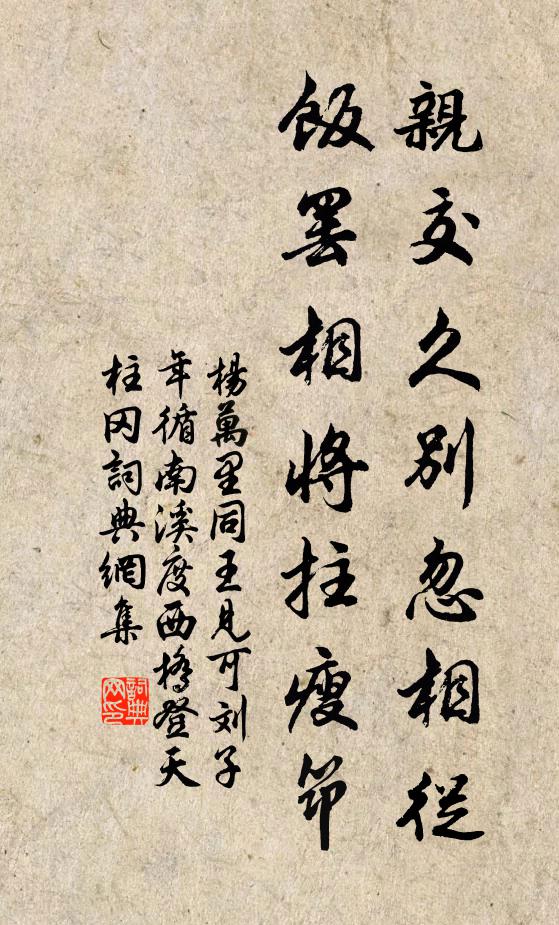 親交久別忽相從
飯罷相將拄瘦筇
楊萬里同王見可刘子
年循南溪度西橋登天
柱冈詞典網集
詞典
网印